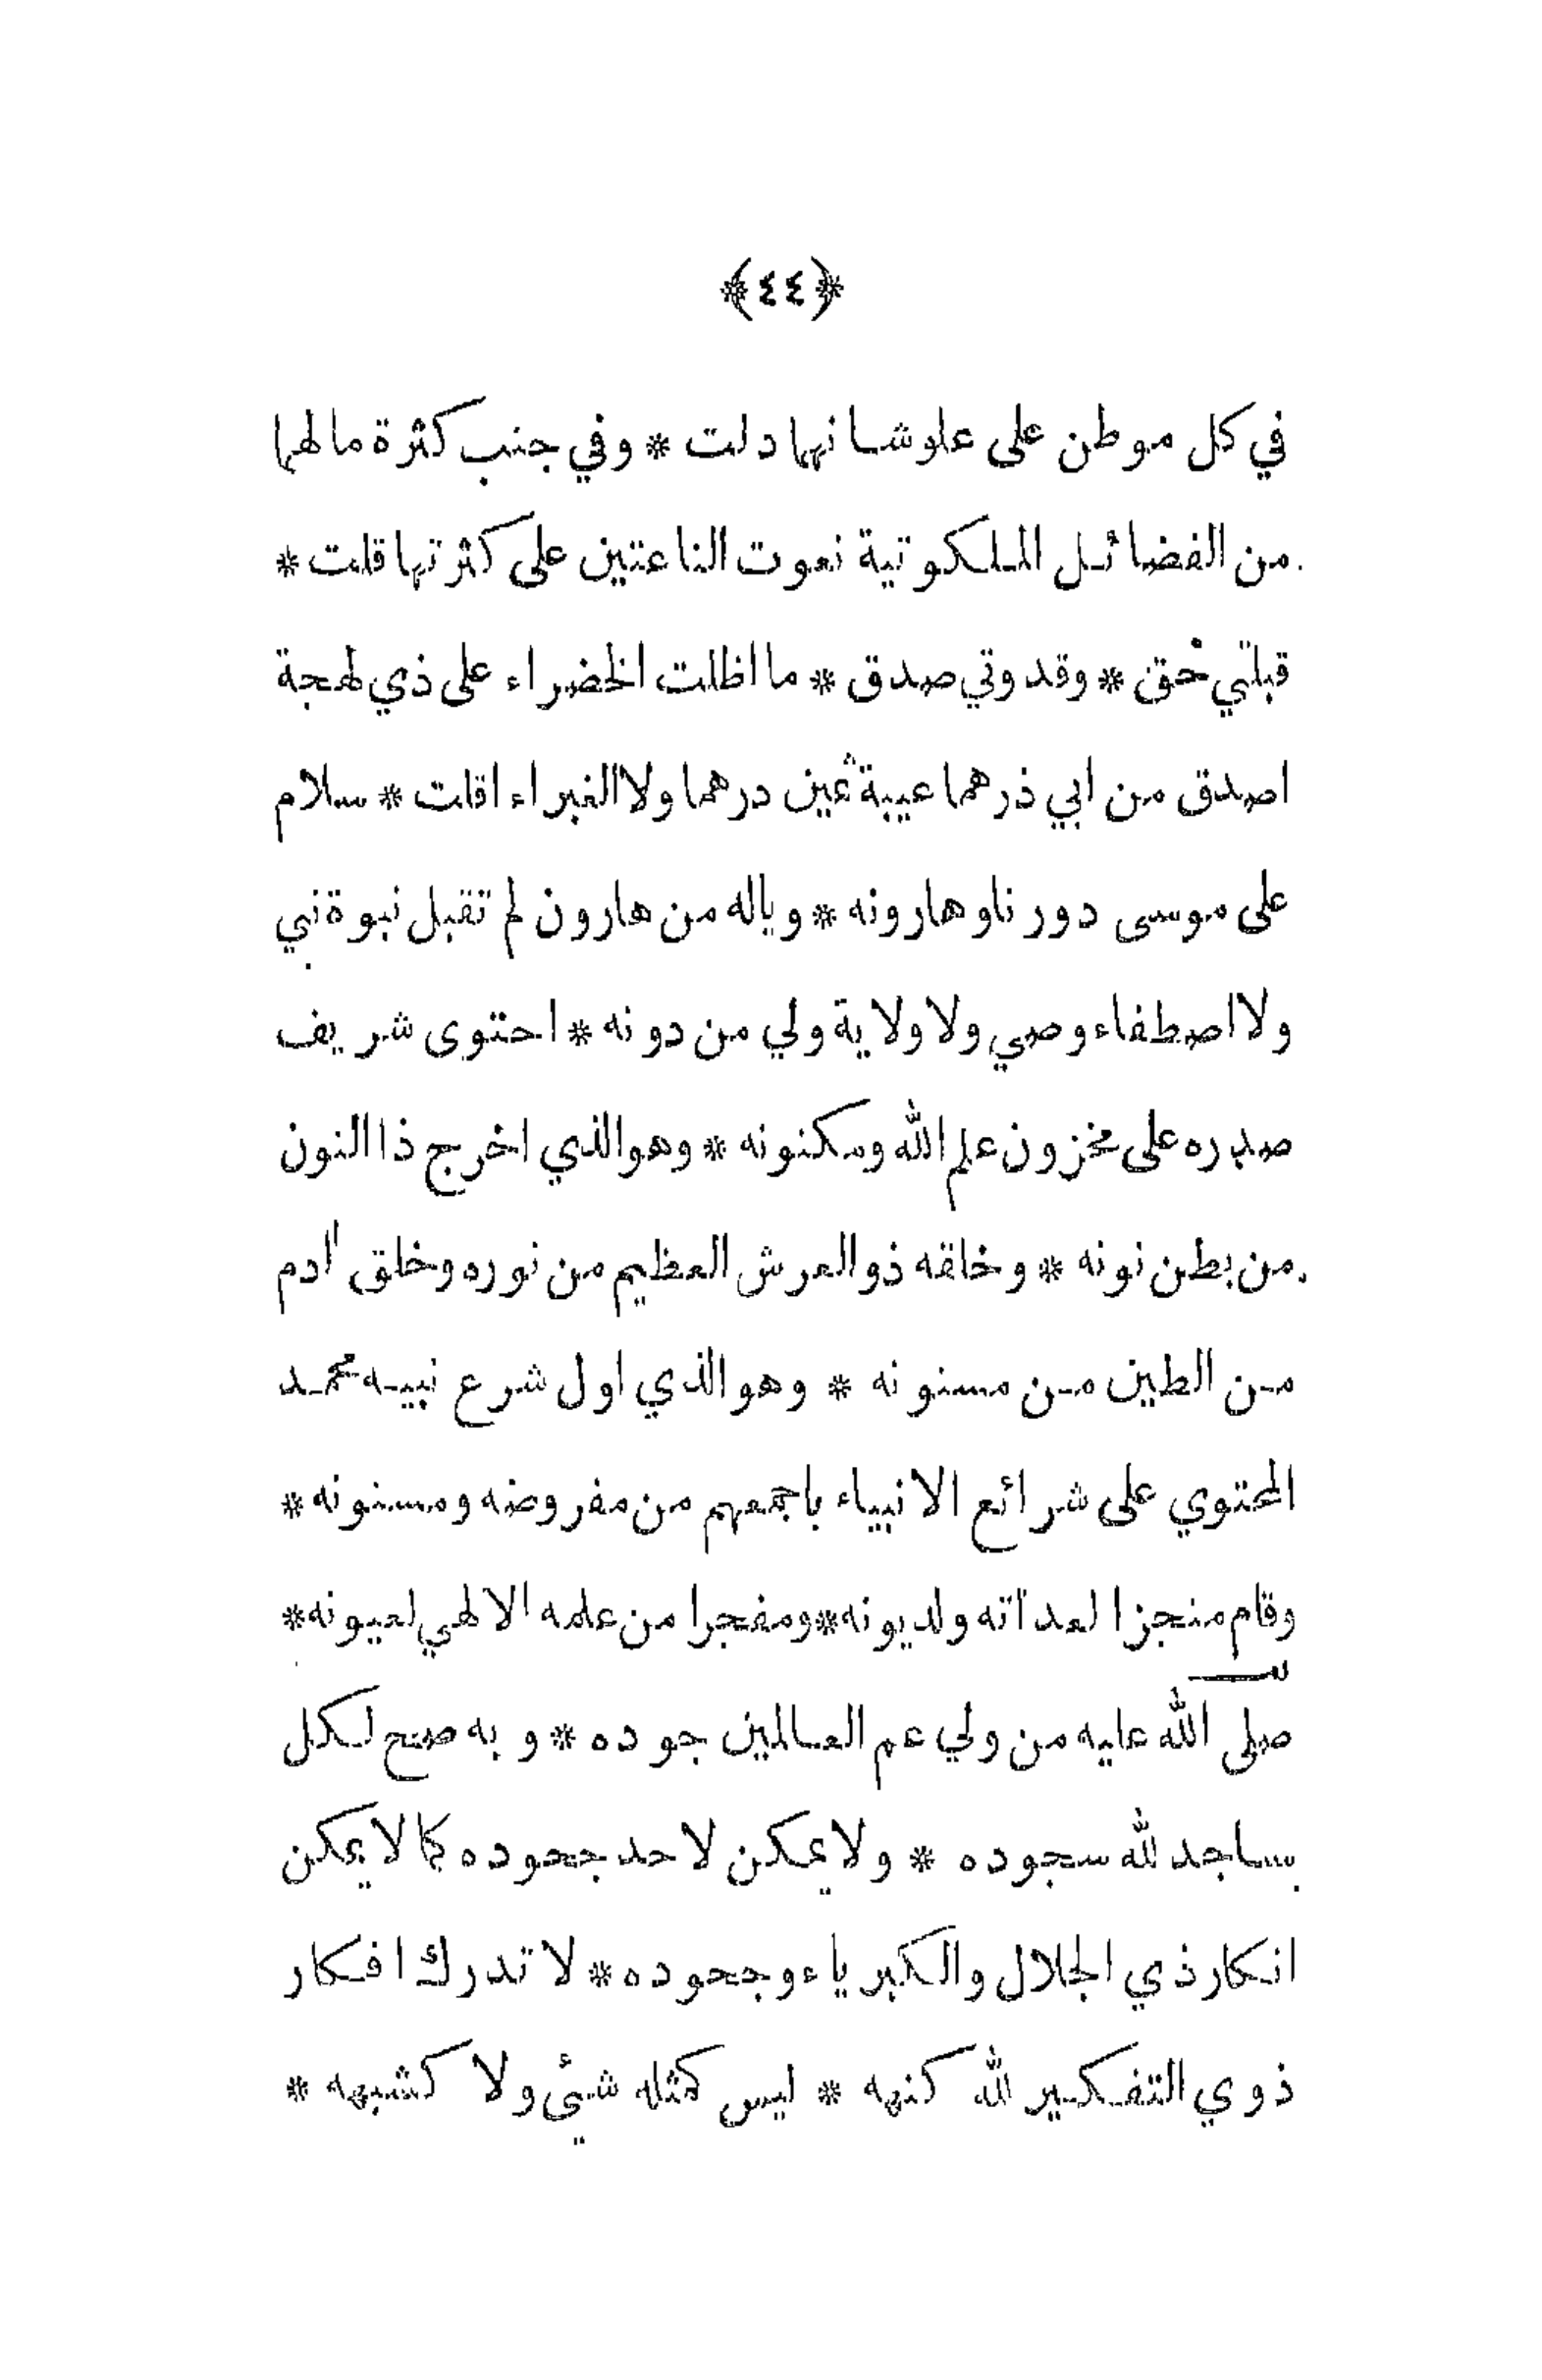 ﴿٤٤﴾
في كل موطن على علو شانهما دلت * وفي جنب كثرة ما لهما
من الفضائل الملكوتية نعوت الناعتين على كثرتها قلت *
قبلتي حق * وقدوتي صدق * ما اظلت الخضراء على ذي لهجة
اصدق من ابي ذرهما عيبة ثمين درهما ولا الغبراء اقلت * سلام
على موسى دورنا وهارونه * وياله من هارون لم تقبل نبوة نبي
ولا اصطفاء وصي ولا ولاية ولي من دونه * احتوى شريف
صدره على مخزون علم الله ومكنونه * وهو الذي اخرج ذا النون
من بطن نونه * وخلقه ذو العرش العظيم من نوره وخلق آدم
من الطين من مسنونه * وهو الذي اول شرع نبيه محمد
المحتوي على شرائع الانبياء باجمعهم من مفروضه ومسنونه *
وقام منجزا لعداته ولديونه * ومفجرا من علمه الالهي لعيونه *
صلى الله عليه من ولي عم العالمين جوده * و به صح لكل
ساجد لله سجوده * ولا يمكن لاحد جحوده كما لا يمكن
انكار ذي الجلال والكبرياء وجحوده * لا تدرك افكار
ذوي التفكير لله كنهه * ليس كمثله شيئ ولا كشبهه *